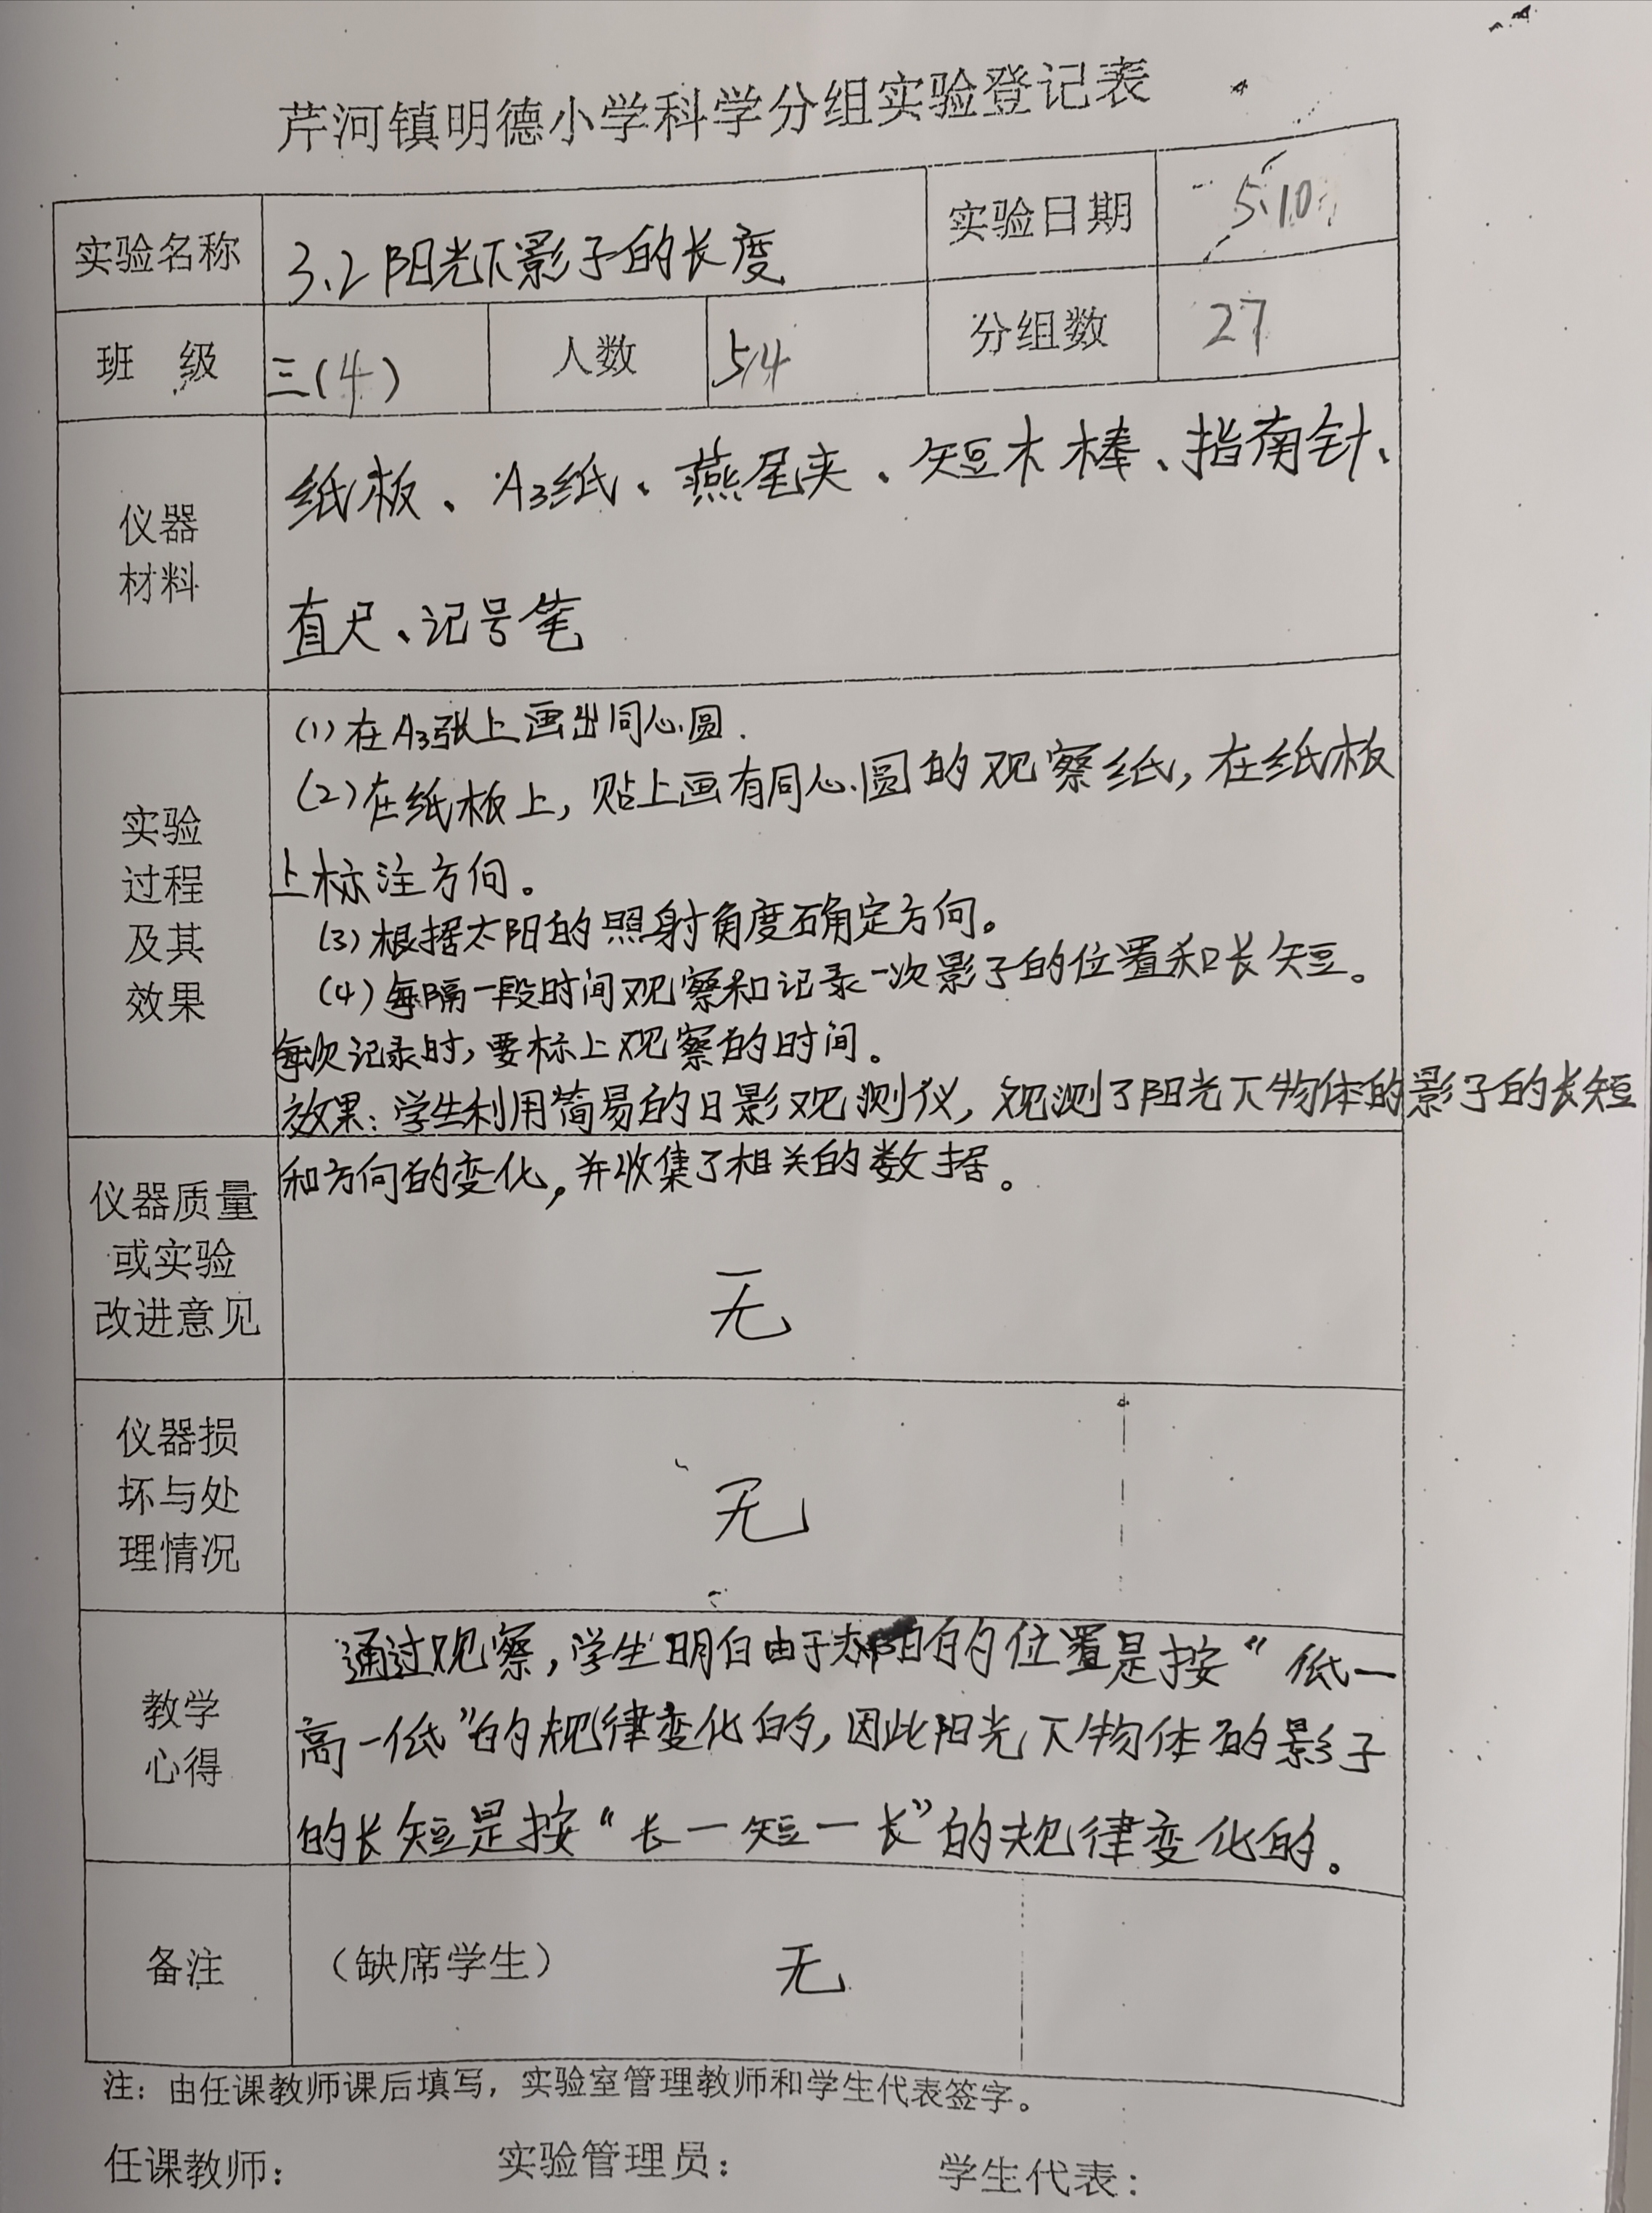 芹河镇明德小学科学分组实验登记表
实验名称 3.2阳光下影子的长度 实验日期 5.10
班 级 三(4) 人数 54 分组数 27
仪器
材料
纸板、A3纸、燕尾夹、短木棒、指南针、
直尺、记号笔
实验
过程
及其
效果
(1)在A3张上画出同心圆.
(2)在纸板上,贴上画有同心圆的观察纸,在纸板
上标注方向。
(3)根据太阳的照射角度确定方向。
(4)每隔一段时间观察和记录一次影子的位置和长短。
每次记录时,要标上观察的时间。
效果:学生利用简易的日影观测仪,观测了阳光下物体的影子的长短
和方向的变化,并收集了相关的数据。
仪器质量
或实验
改进意见
无
仪器损
坏与处
理情况
无
教学
心得
通过观察,学生明白由于太阳的位置是按“低一
高一低”的规律变化的,因此阳光下物体的影子
的长短是按“长一短一长”的规律变化的。
备注 (缺席学生) 无
注:由任课教师课后填写,实验室管理教师和学生代表签字。
任课教师: 实验管理员: 学生代表: